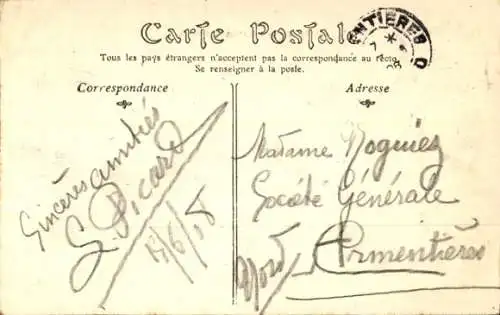 Carte Postale
Tous les pays étrangers n'acceptent pas la correspondance au recto
Se renseigner à la poste.
Correspondance
Adresse
Sincères amitiés
G. Picard
Madame
Société Générale
Armentières
Nord